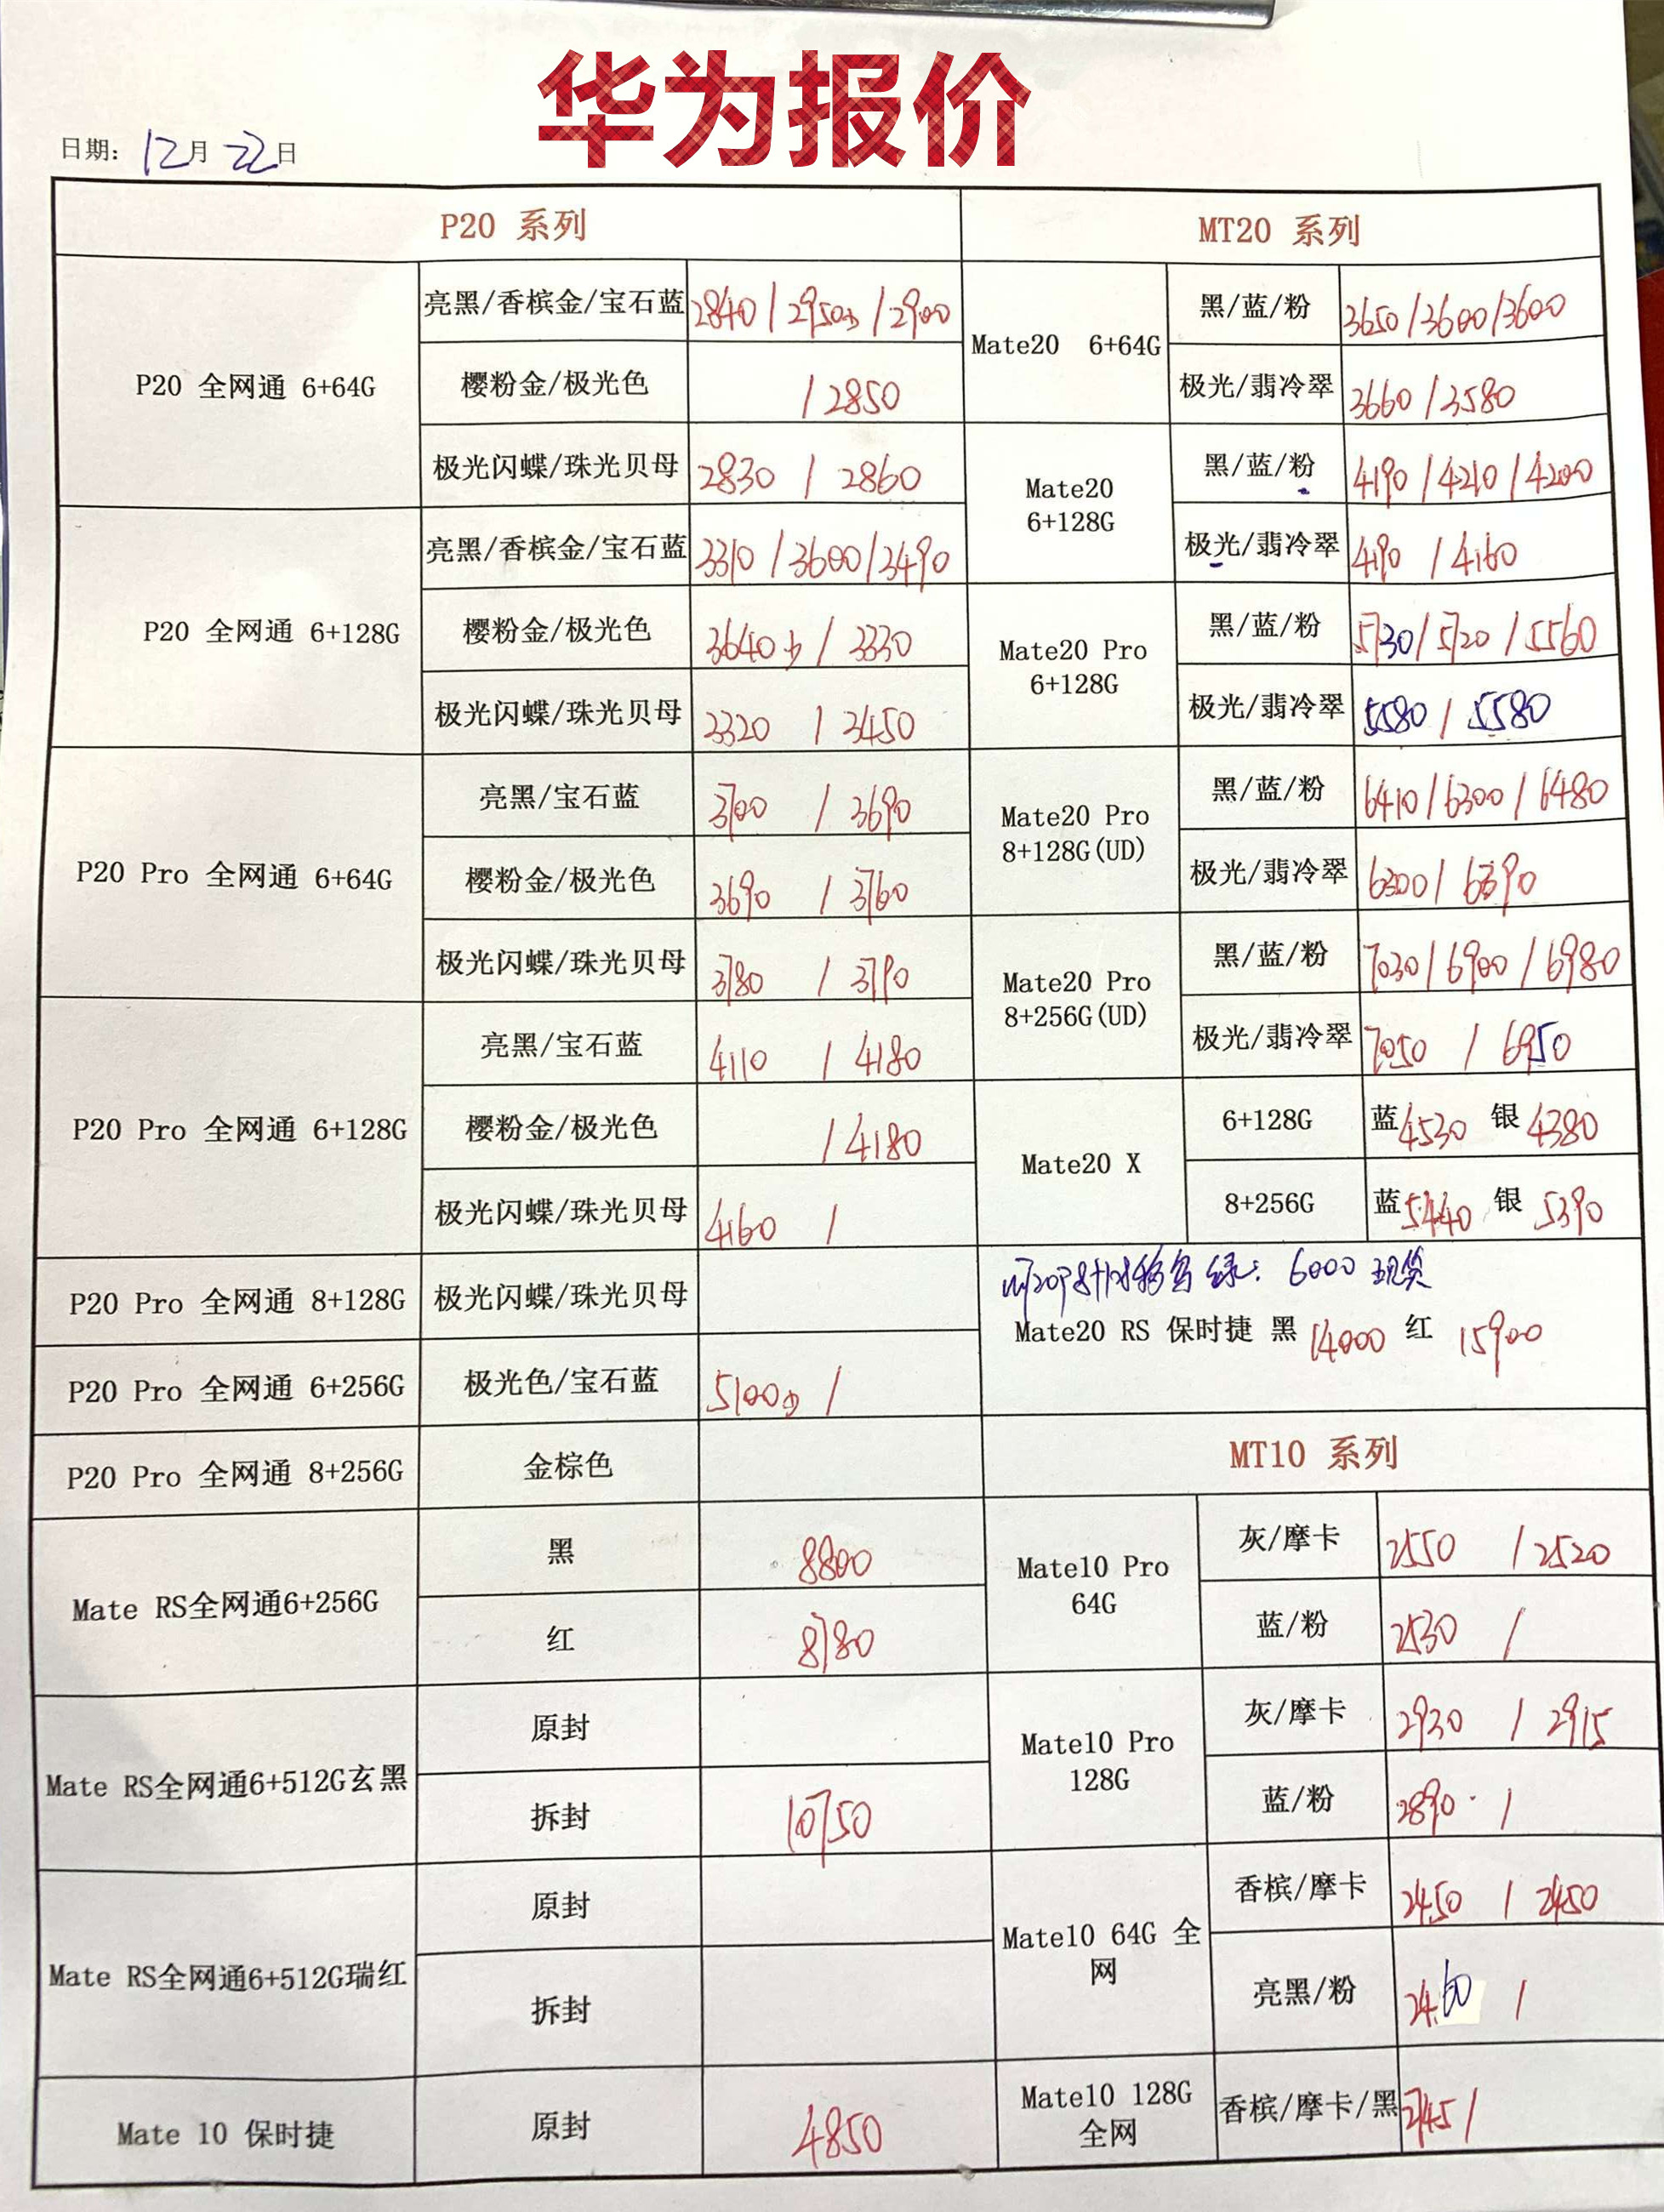 华为报价
日期: 12月22日
P20 系列
P20 全网通 6+64G
亮黑/香槟金/宝石蓝 2840 / 2950少 / 2900
樱粉金/极光色 / 2850
极光闪蝶/珠光贝母 2830 / 2860
P20 全网通 6+128G
亮黑/香槟金/宝石蓝 3310 / 3600 / 3490
樱粉金/极光色 3640少 / 3330
极光闪蝶/珠光贝母 3320 / 3450
P20 Pro 全网通 6+64G
亮黑/宝石蓝 3700 / 3690
樱粉金/极光色 3690 / 3760
极光闪蝶/珠光贝母 3780 / 3790
P20 Pro 全网通 6+128G
亮黑/宝石蓝 4110 / 4180
樱粉金/极光色 / 4180
极光闪蝶/珠光贝母 4160 /
P20 Pro 全网通 8+128G 极光闪蝶/珠光贝母
P20 Pro 全网通 6+256G 极光色/宝石蓝 5100少 /
P20 Pro 全网通 8+256G 金棕色
Mate RS全网通6+256G
黑 8800
红 8780
Mate RS全网通6+512G玄黑
原封
拆封 10750
Mate RS全网通6+512G瑞红
原封
拆封
Mate 10 保时捷 原封 4850
MT20 系列
Mate20 6+64G
黑/蓝/粉 3650 / 3600 / 3600
极光/翡冷翠 3660 / 3580
Mate20
6+128G
黑/蓝/粉 4190 / 4210 / 4200
极光/翡冷翠 4190 / 4160
Mate20 Pro
6+128G
黑/蓝/粉 5730 / 5720 / 5560
极光/翡冷翠 5580 / 5580
Mate20 Pro
8+128G(UD)
黑/蓝/粉 6410 / 6300 / 6480
极光/翡冷翠 6300 / 6390
Mate20 Pro
8+256G(UD)
黑/蓝/粉 7030 / 6900 / 6980
极光/翡冷翠 7050 / 6950
Mate20 X
6+128G 蓝 4530 银 4380
8+256G 蓝 5440 银 5390
绿: 6000 现货
Mate20 RS 保时捷 黑 14000 红 15900
MT10 系列
Mate10 Pro
64G
灰/摩卡 2550 / 2520
蓝/粉 2530 /
Mate10 Pro
128G
灰/摩卡 2930 / 2915
蓝/粉 2890 /
Mate10 64G 全
网
香槟/摩卡 2450 / 2450
亮黑/粉 2460 /
Mate10 128G
全网
香槟/摩卡/黑